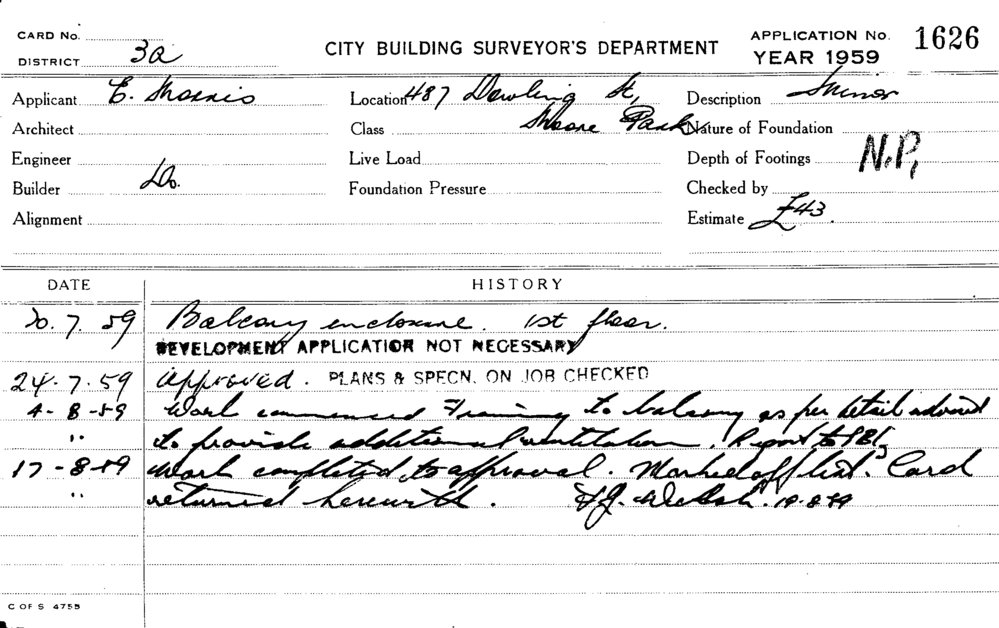 CARD No.
DISTRICT 3a
CITY BUILDING SURVEYOR'S DEPARTMENT
APPLICATION No. 1626
YEAR 1959
Applicant E. Morris
Location 487 Dowling St,
Description Minor
Architect
Class Moore Park
Nature of Foundation
Engineer
Live Load
Depth of Footings N.P.
Builder Do.
Foundation Pressure
Checked by
Alignment
Estimate £43.
DATE HISTORY
20.7.59 Balcony enclosure. 1st floor.
DEVELOPMENT APPLICATION NOT NECESSARY
24.7.59 Approved. PLANS & SPECN. ON JOB CHECKED
4-8-59 Work commenced Framing to balcony as per detail advised
" to provide additional ventilation. Report to
17-8-59 Work completed to approval. Marked off list. Card
" returned herewith. 19-8-59
C OF S 475B